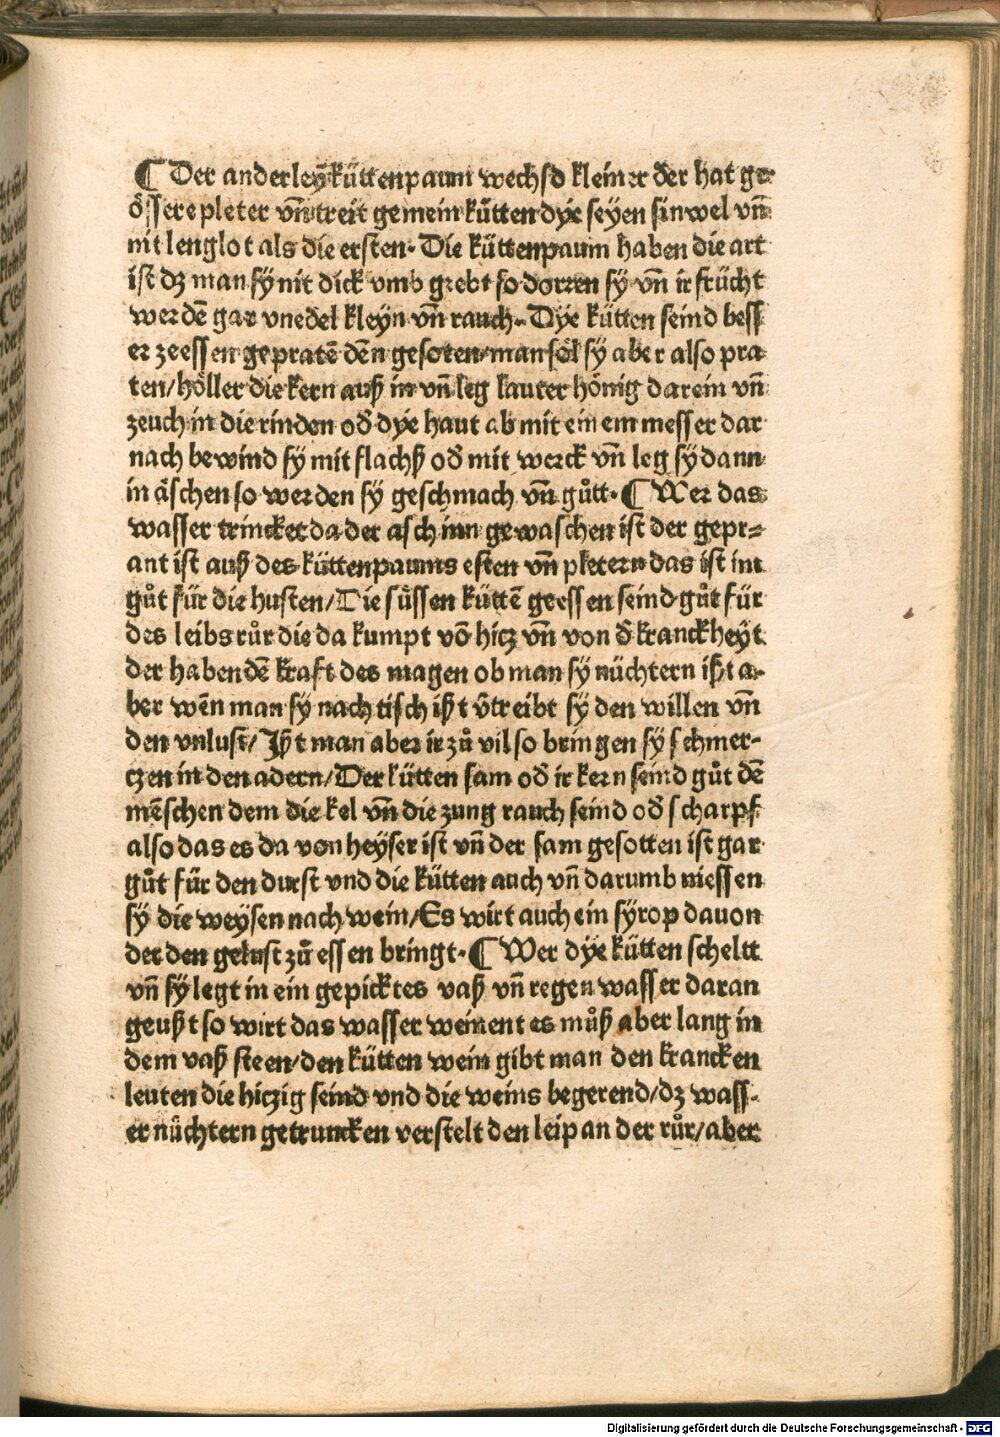 ¶ Der anderley küttenpaum wechsd kleiner d̄er hat gr
össere pleter vn̄ treit gemein kütten dye seyen sinwel vn̄
nit lenglot als die ersten. Die küttenpaum haben die art
ist dz man sÿ nit dick vmb grebt so dorren sÿ vn̄ ir frücht
werdē gar vnedel kleyn vn̄ rauch. Dÿe kütten seind bess
er ze essen gepratē dēn gesoten/man sol sÿ aber also pra-
ten/höller die kern auß in vn̄ leg lauter hönig darein vn̄
zeuch in die rinden od̄ dÿe haut ab mit ein em messer dar
nach bewind sÿ mit flachß od̄ mit werck vn̄ leg sÿ dann
in äschen so werden sÿ geschmach vn̄ gůtt. ¶ Wer das
wasser trincket da der asch inn gewaschen ist der gepr=
ant ist auß des küttenpaums esten vn̄ pletern das ist im
gůt für die husten/Die süssen küttē geessen seind gůt für
des leibs růr die da kumpt vō hicz vn̄ von d̄ kranckheÿt
der haben dē kraft des magen ob man sÿ nüchtern ißt a-
ber wēn man sÿ nach tisch ißt v̄treibt sÿ den willen vn̄
den vnlust/Ißt man aber ir zů vil so bringen sÿ schmer-
czen in den adern/Der kütten sam od̄ ir kern seind gůt dē
mēschen dem die kel vn̄ die zung rauch seind od̄ scharpf
also das es da von heÿser ist vn̄ der sam gesotten ist gar
gůt für den durst vnd die kütten auch vn̄ darumb niessen
sÿ die weÿsen nach wein/Es wirt auch ein sÿrop dauon
der den gelust zů essen bringt. ¶ Wer dÿe kütten scheltt
vn̄ sÿ legt in ein gepicktes vaß vn̄ regen wasser daran
geußt so wirt das wasser weinent es můß aber lang in
dem vaß steen/den kütten wein gibt man den krancken
leuten die hiczig seind vnd die weins begerend/dz wass-
er nüchtern getruncken verstelt den leip an der růr/aber
Digitalisierung gefördert durch die Deutsche Forschungsgemeinschaft - DFG